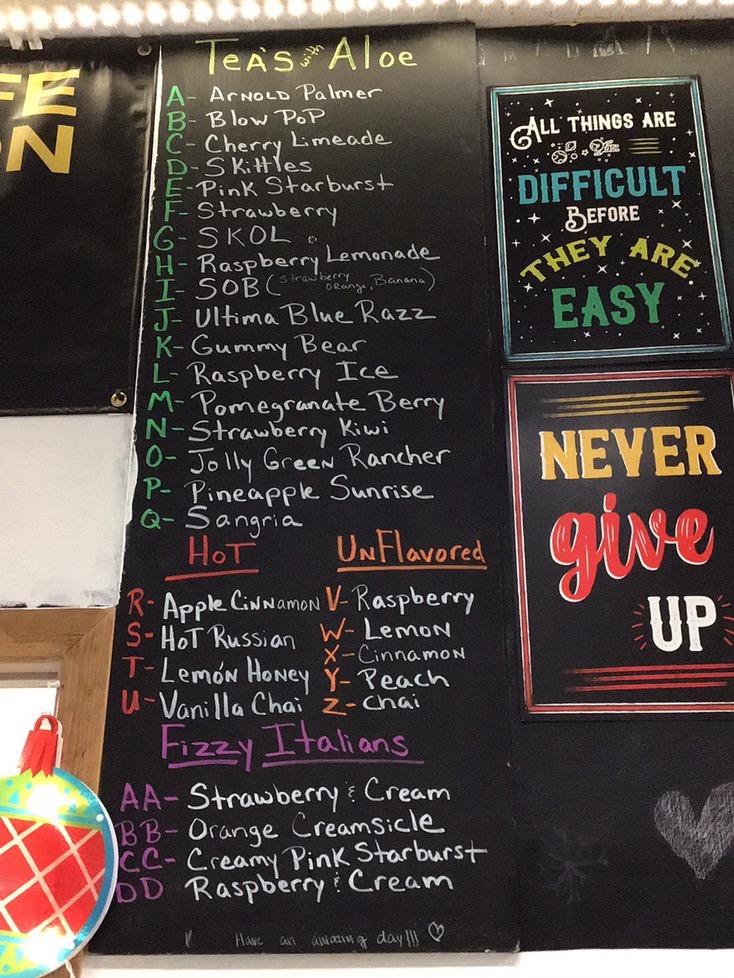 FE
ON
Tea's with Aloe
A- Arnold Palmer
B- Blow PoP
C- Cherry Limeade
D- Skittles
E- Pink Starburst
F- Strawberry
G- SKOL
H- Raspberry Lemonade
I- SOB (Strawberry
Orange, Banana)
J- Ultima Blue Razz
K- Gummy Bear
L- Raspberry Ice
M- Pomegranate Berry
N- Strawberry Kiwi
O- Jolly Green Rancher
P- Pineapple Sunrise
Q- Sangria
HoT
R- Apple Cinnamon
S- HoT Russian
T- Lemon Honey
U- Vanilla Chai
UnFlavored
V- Raspberry
W- Lemon
X- Cinnamon
Y- Peach
Z- Chai
Fizzy Italians
AA- Strawberry & Cream
BB- Orange Creamsicle
CC- Creamy Pink Starburst
DD Raspberry & Cream
Have an amazing day!!! ♡
ALL THINGS ARE
DIFFICULT
BEFORE
THEY ARE
EASY
NEVER
give
UP